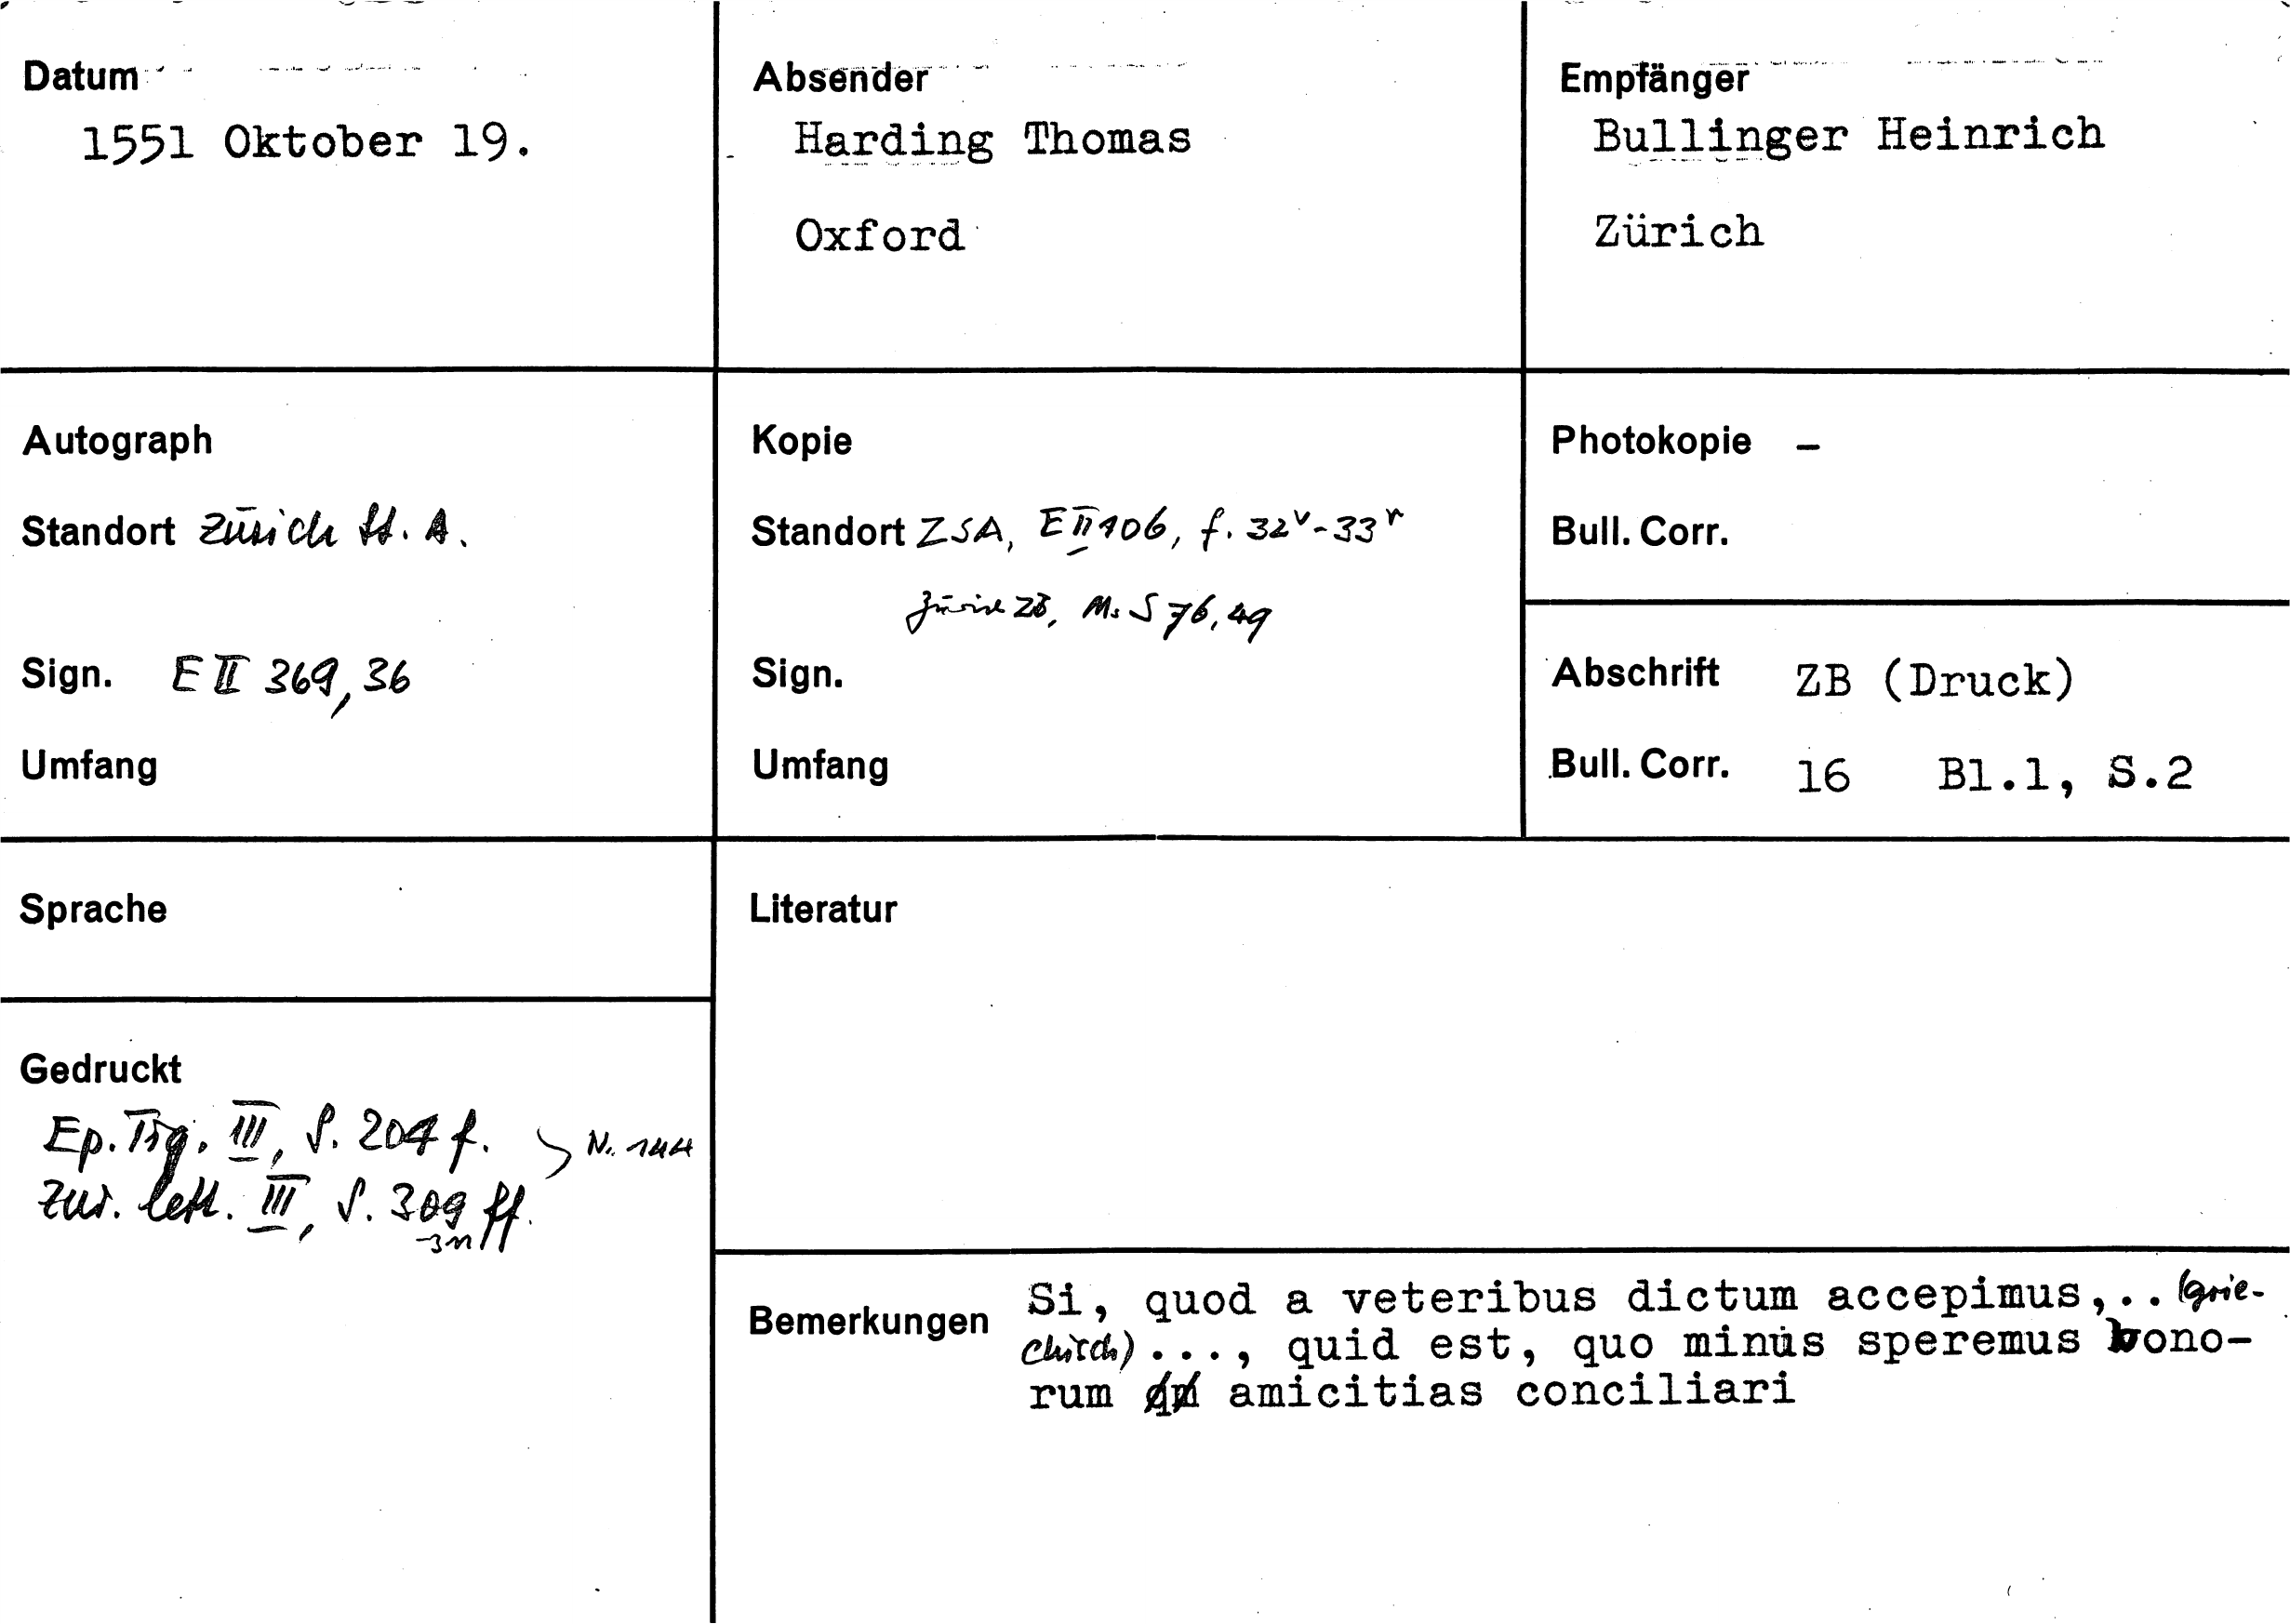 Datum
1551 Oktober 19.
Absender
Harding Thomas
Oxford
Empfänger
Bullinger Heinrich
Zürich
Autograph
Standort Zürich St. A.
Sign. E II 369, 36
Umfang
Kopie
Standort ZSA, E II 106, f. 32v-33r
Zürich ZB, Ms S 76, 49
Sign.
Umfang
Photokopie –
Bull. Corr.
Abschrift ZB (Druck)
Bull. Corr. 16 Bl.1, S.2
Sprache
Gedruckt
Ep. Tig. III, S. 204 f.
Zur. lett. III, S. 309 ff.
-311
N. 144
Literatur
Bemerkungen Si, quod a veteribus dictum accepimus,.. (grie-
chisch)..., quid est, quo minus speremus bono-
rum amicitias conciliari